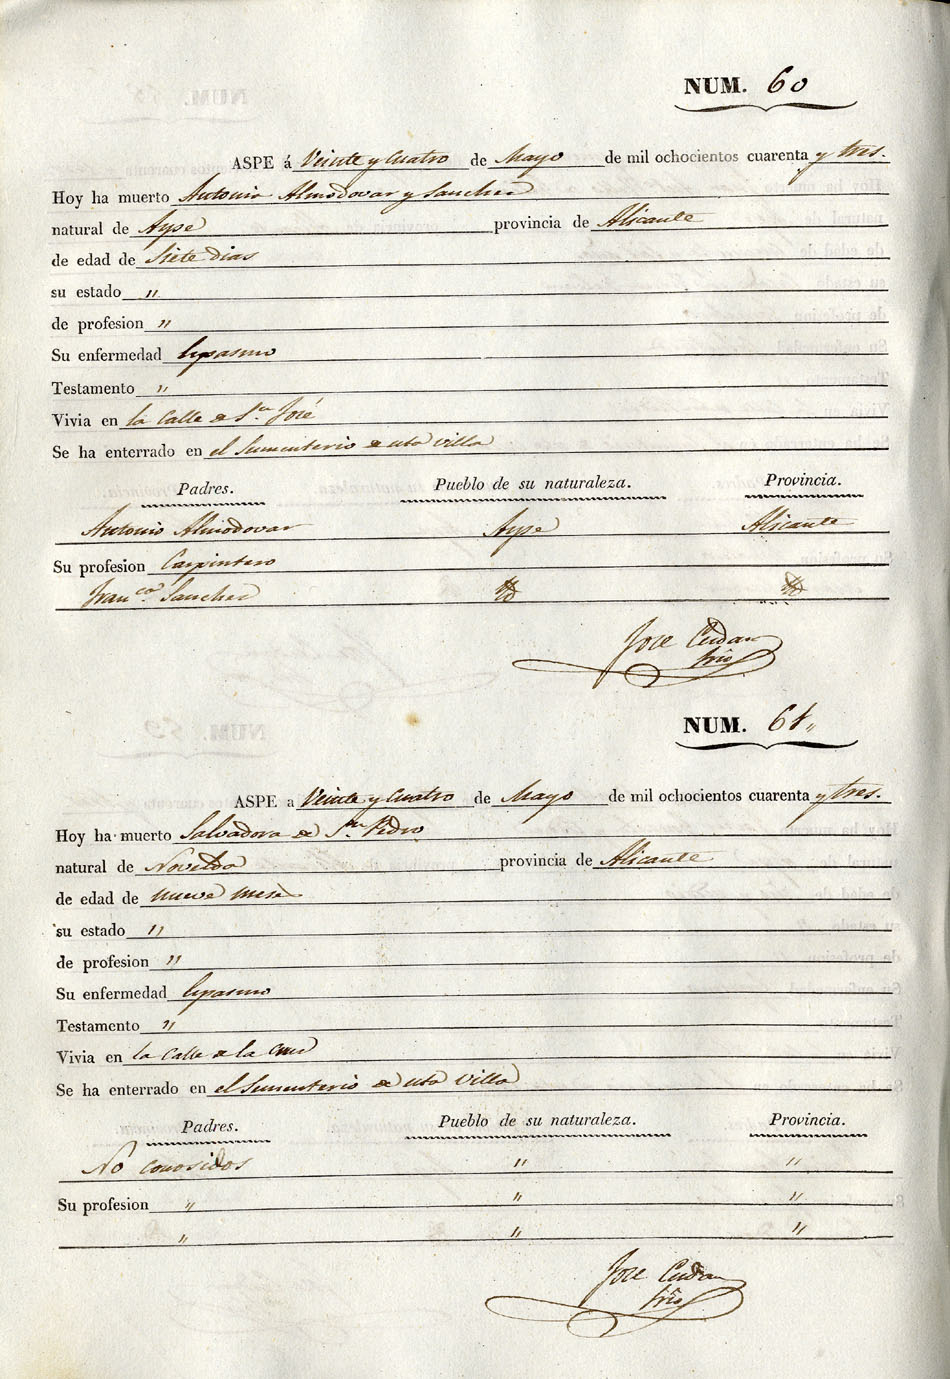 NUM. 60
ASPE á Veinte y Cuatro de Mayo de mil ochocientos cuarenta y tres.
Hoy ha muerto Antonio Almodovar y Sanchez
natural de Aspe provincia de Alicante
de edad de Siete dias
su estado "
de profesion "
Su enfermedad Espasmo
Testamento "
Vivia en la Calle de Sn José
Se ha enterrado en el Sementerio de esta Villa
Padres. Pueblo de su naturaleza. Provincia.
Antonio Almodovar Aspe Alicante
Su profesion Carpintero
Franca. Sanchez
Jose Cerdan
NUM. 61"
ASPE a Veinte y Cuatro de Mayo de mil ochocientos cuarenta y tres.
Hoy ha muerto Salvadora de Sn Pedro
natural de Novelda provincia de Alicante
de edad de nueve mese
su estado "
de profesion "
Su enfermedad Espasmo
Testamento "
Vivia en la Calle de la Cruz
Se ha enterrado en el Sementerio de esta Villa
Padres. Pueblo de su naturaleza. Provincia.
No conosidos " "
Su profesion " " "
" " "
Jose Cerdan